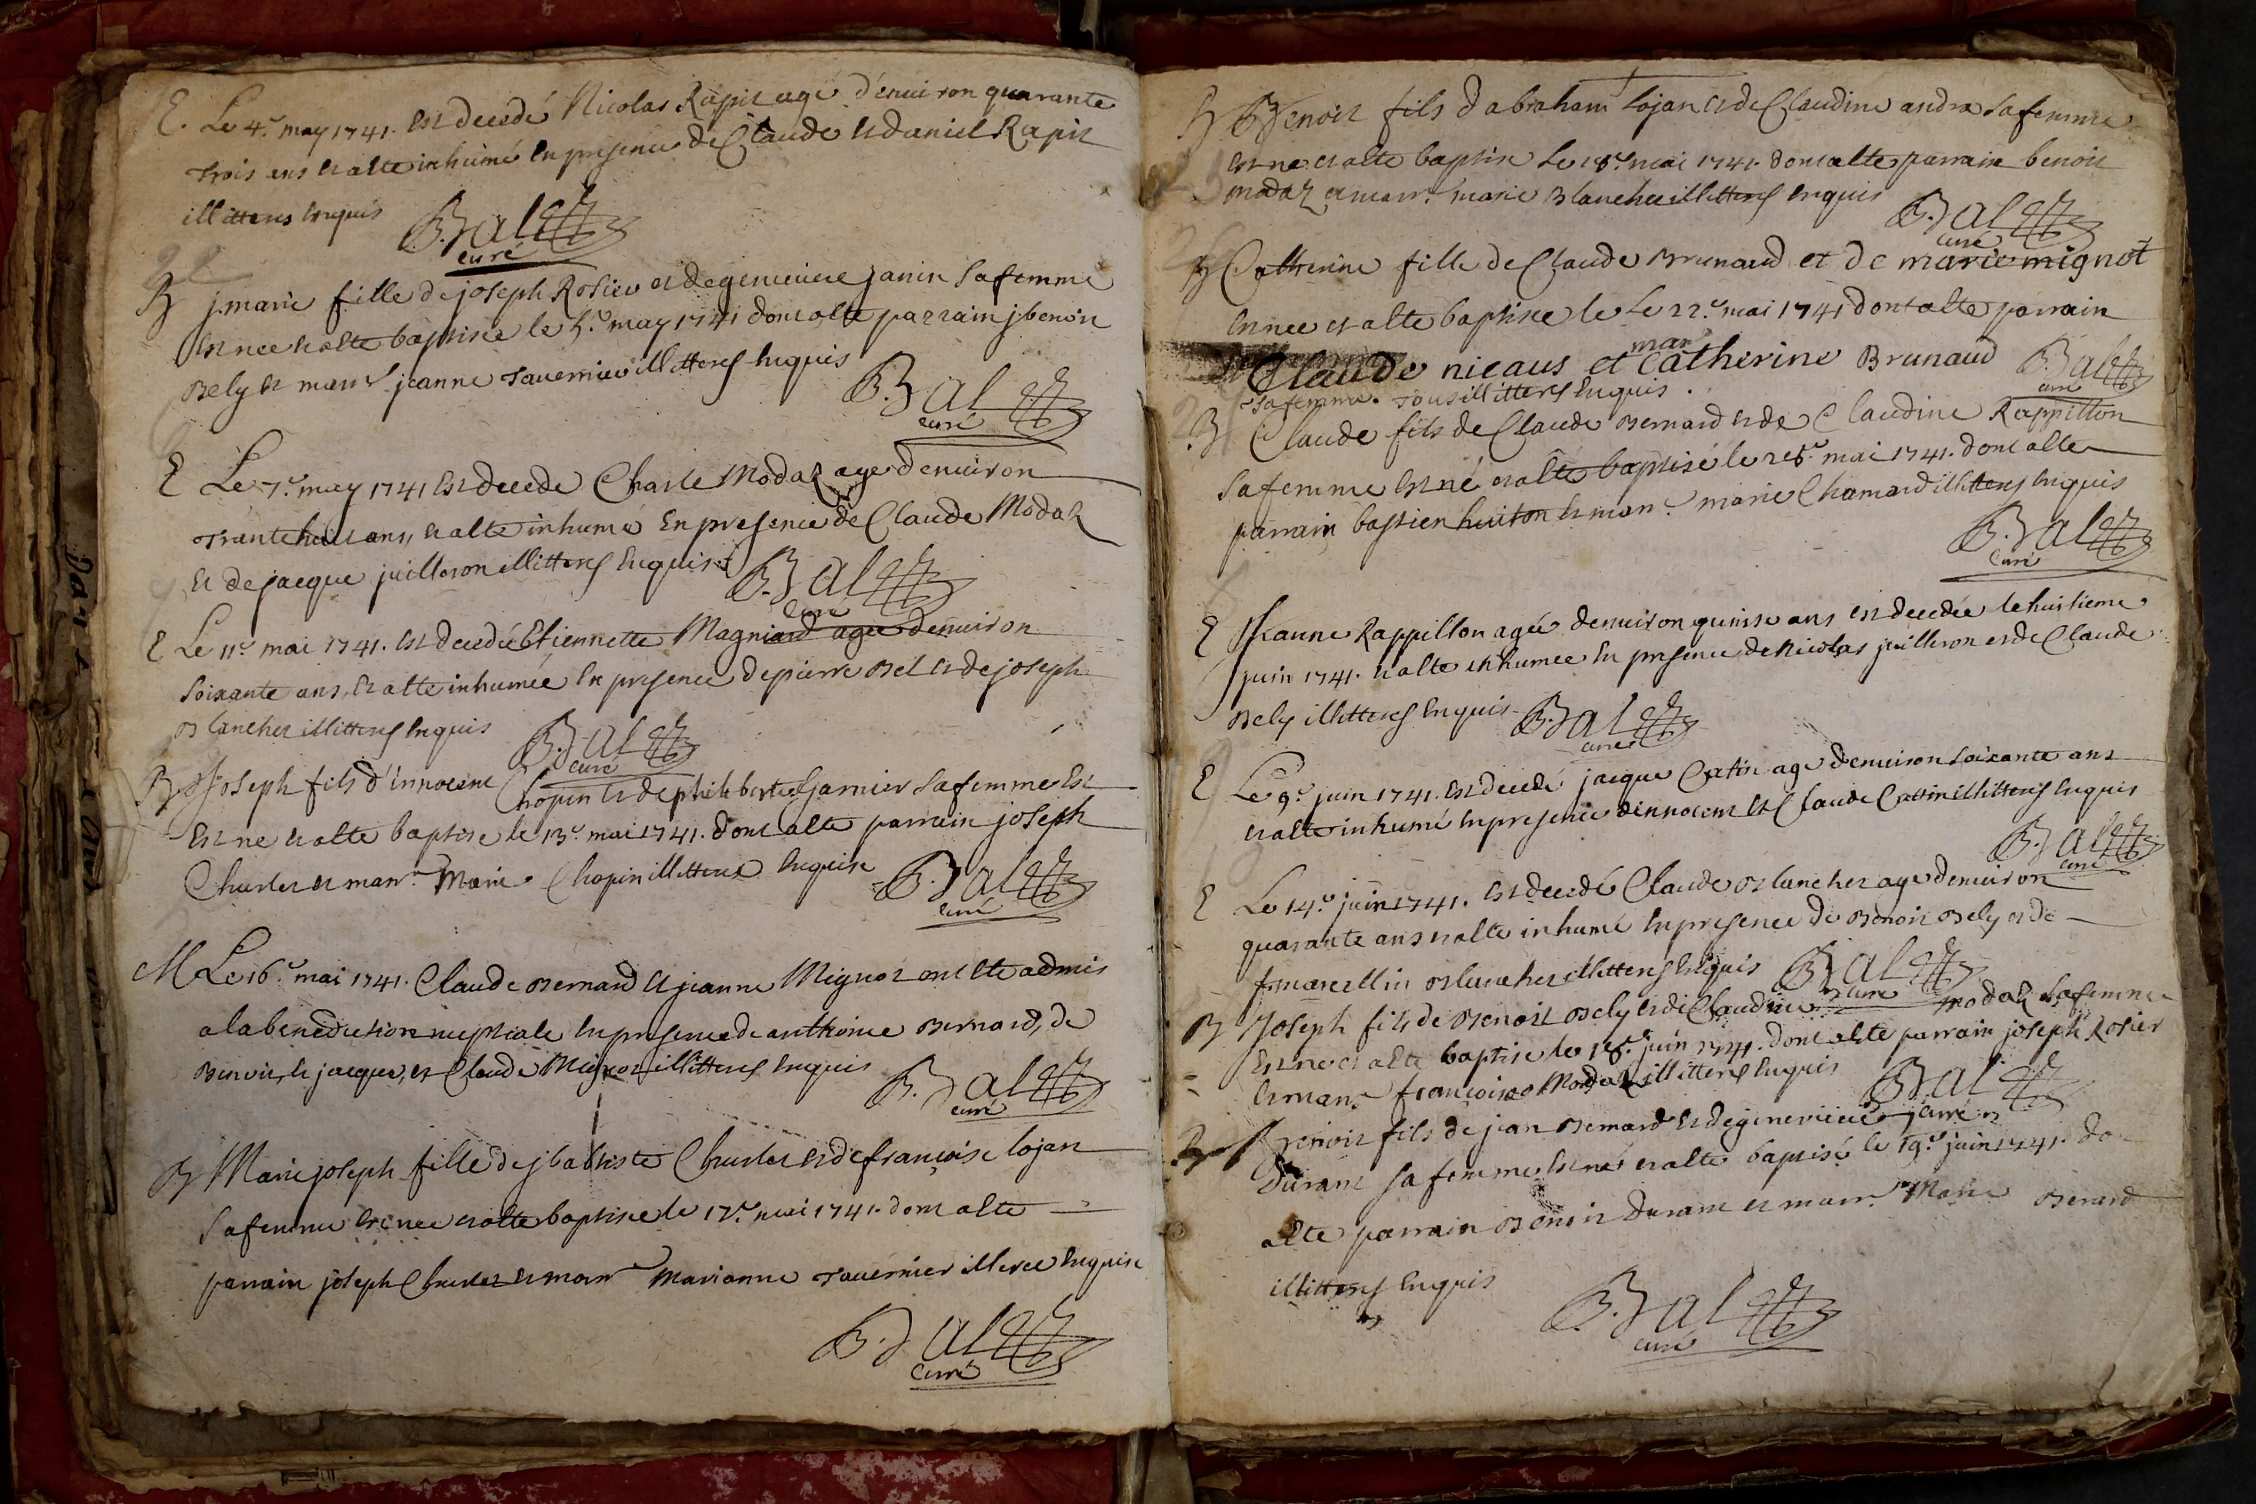 E. Le 4e may 1741. est decedé Nicolas Rapit agé d'enuiron quarante
trois ans et a ette inhumé en presence de Claude et daniel Rapit
illitteres enquis B. Bal
curé
B j. marie fille de joseph Rosier et de genevieve janin sa femme
est nee et a ette baptisée le 5e may 1741 dont a ette parrain j benoit
Bely et marr. jeanne Tauernier illitteres enquis
B. Bal
curé
E Le 7e may 1741 est decedé Charle Modaz agé denuiron
trante huit ans, et a ette inhumé En presence de Claude Modaz
et de jacque juilleron illitteres enquis B. Bal
curé
E Le 11e mai 1741. est decedée Etiennette Magniard agée denuiron
soixante ans, et a ette inhumée en presence de pierre Bel et de joseph
Blanchet illitteres enquis B. Bal
curé
B Joseph fils d'innocent Chopin et de philiberte Garnier sa femme est
est ne et a ette baptise le 13e mai 1741. dont a ette parrain joseph
Charlet et marr. Marie Chopin illitteres enquise B. Bal
curé
M Le 16e mai 1741. Claude Bernard et jeanne Mignot ont ete admis
a la benediction nuptiale en presence de anthoine Bernard, de
Benoit, de jacque, et Claude Mignot illitteres enquis
B. Bal
curé
B Marie joseph fille de j baptiste Charlet et de françoise lojan
sa femme est nee et a ette baptisée le 17e mai 1741. dont a ette
parrain joseph Charlet et marr. Marianne Tauernier illiteree enquise
B. Bal
curé
B Benoit fils d abraham lojan et de Claudine andra sa femme
est ne et a ette baptise le 18e mai 1741. dont a ette parrain benoit
modaz et marr. marie Blanchet illitteres enquis B. Bal
curé
B Catherine fille de Claude Brunaud et de marie mignot
est nee et a ette baptisée le Le 22e mai 1741 dont a ette parrain
marr
Claude nicaus et Catherine Brunaud B. Bal
sa femme. tous illitteres enquis. curé
B Claude fils de Claude Bernard et de Claudine Rappillon
sa femme est né et a ette baptisé le 28e mai 1741. dont a ette
parrain bastien huiton et marr. marie Chamard illitteres enquis
B. Bal
curé
E Jeanne Rappillon agée denuiron quinse ans est decedée le huitieme
juin 1741. et a ette inhumee en presence de Nicolas juilleron et de Claude
Bely illitteres enquis B. Bal
curé
E Le 9e juin 1741. est decedé jacque Catin agé denuiron soixante ans
et a ette inhumé en presence dinnocent et Claude Cattin illitteres enquis
B. Bal
curé
E Le 14e juin 1741. est decedé Claude Blanchet agé denuiron
quarante ans et a ette inhumé en presence de Benoit Bely et de
marcellin Blanchet illitteres enquis B. Bal
curé
B Joseph fils de Benoit Bely et de Claudine modaz sa femme
est ne et a ette baptise le 18e juin 1741. dont a ette parrain joseph Rosier
et marr. françoise Modaz illitteres enquis B. Bal
curé
B Benoit fils de jean Bernard et de genevieve
Durant sa femme est né et a ette baptisé le 19e juin 1741. do
ette parrain Benoit Durant et marr. Marie Benard
illitteres enquis
B. Bal
curé